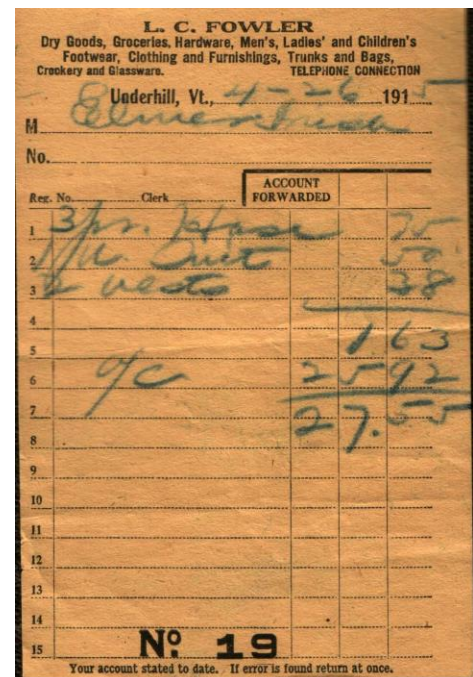 L. C. FOWLER
Dry Goods, Groceries, Hardware, Men's, Ladies' and Children's
Footwear, Clothing and Furnishings, Trunks and Bags,
Crockery and Glassware. TELEPHONE CONNECTION
Underhill, Vt., 4-26 1915
M Elmer Irish
No.
Reg. No. Clerk ACCOUNT FORWARDED
1 3 pr. Hose 75
2 1 U. Suit 50
3 2 vests 38
4
5 1 63
6 a/c 25 92
7 27.55
8
9
10
11
12
13
14
15 No. 19
Your account stated to date. If error is found return at once.